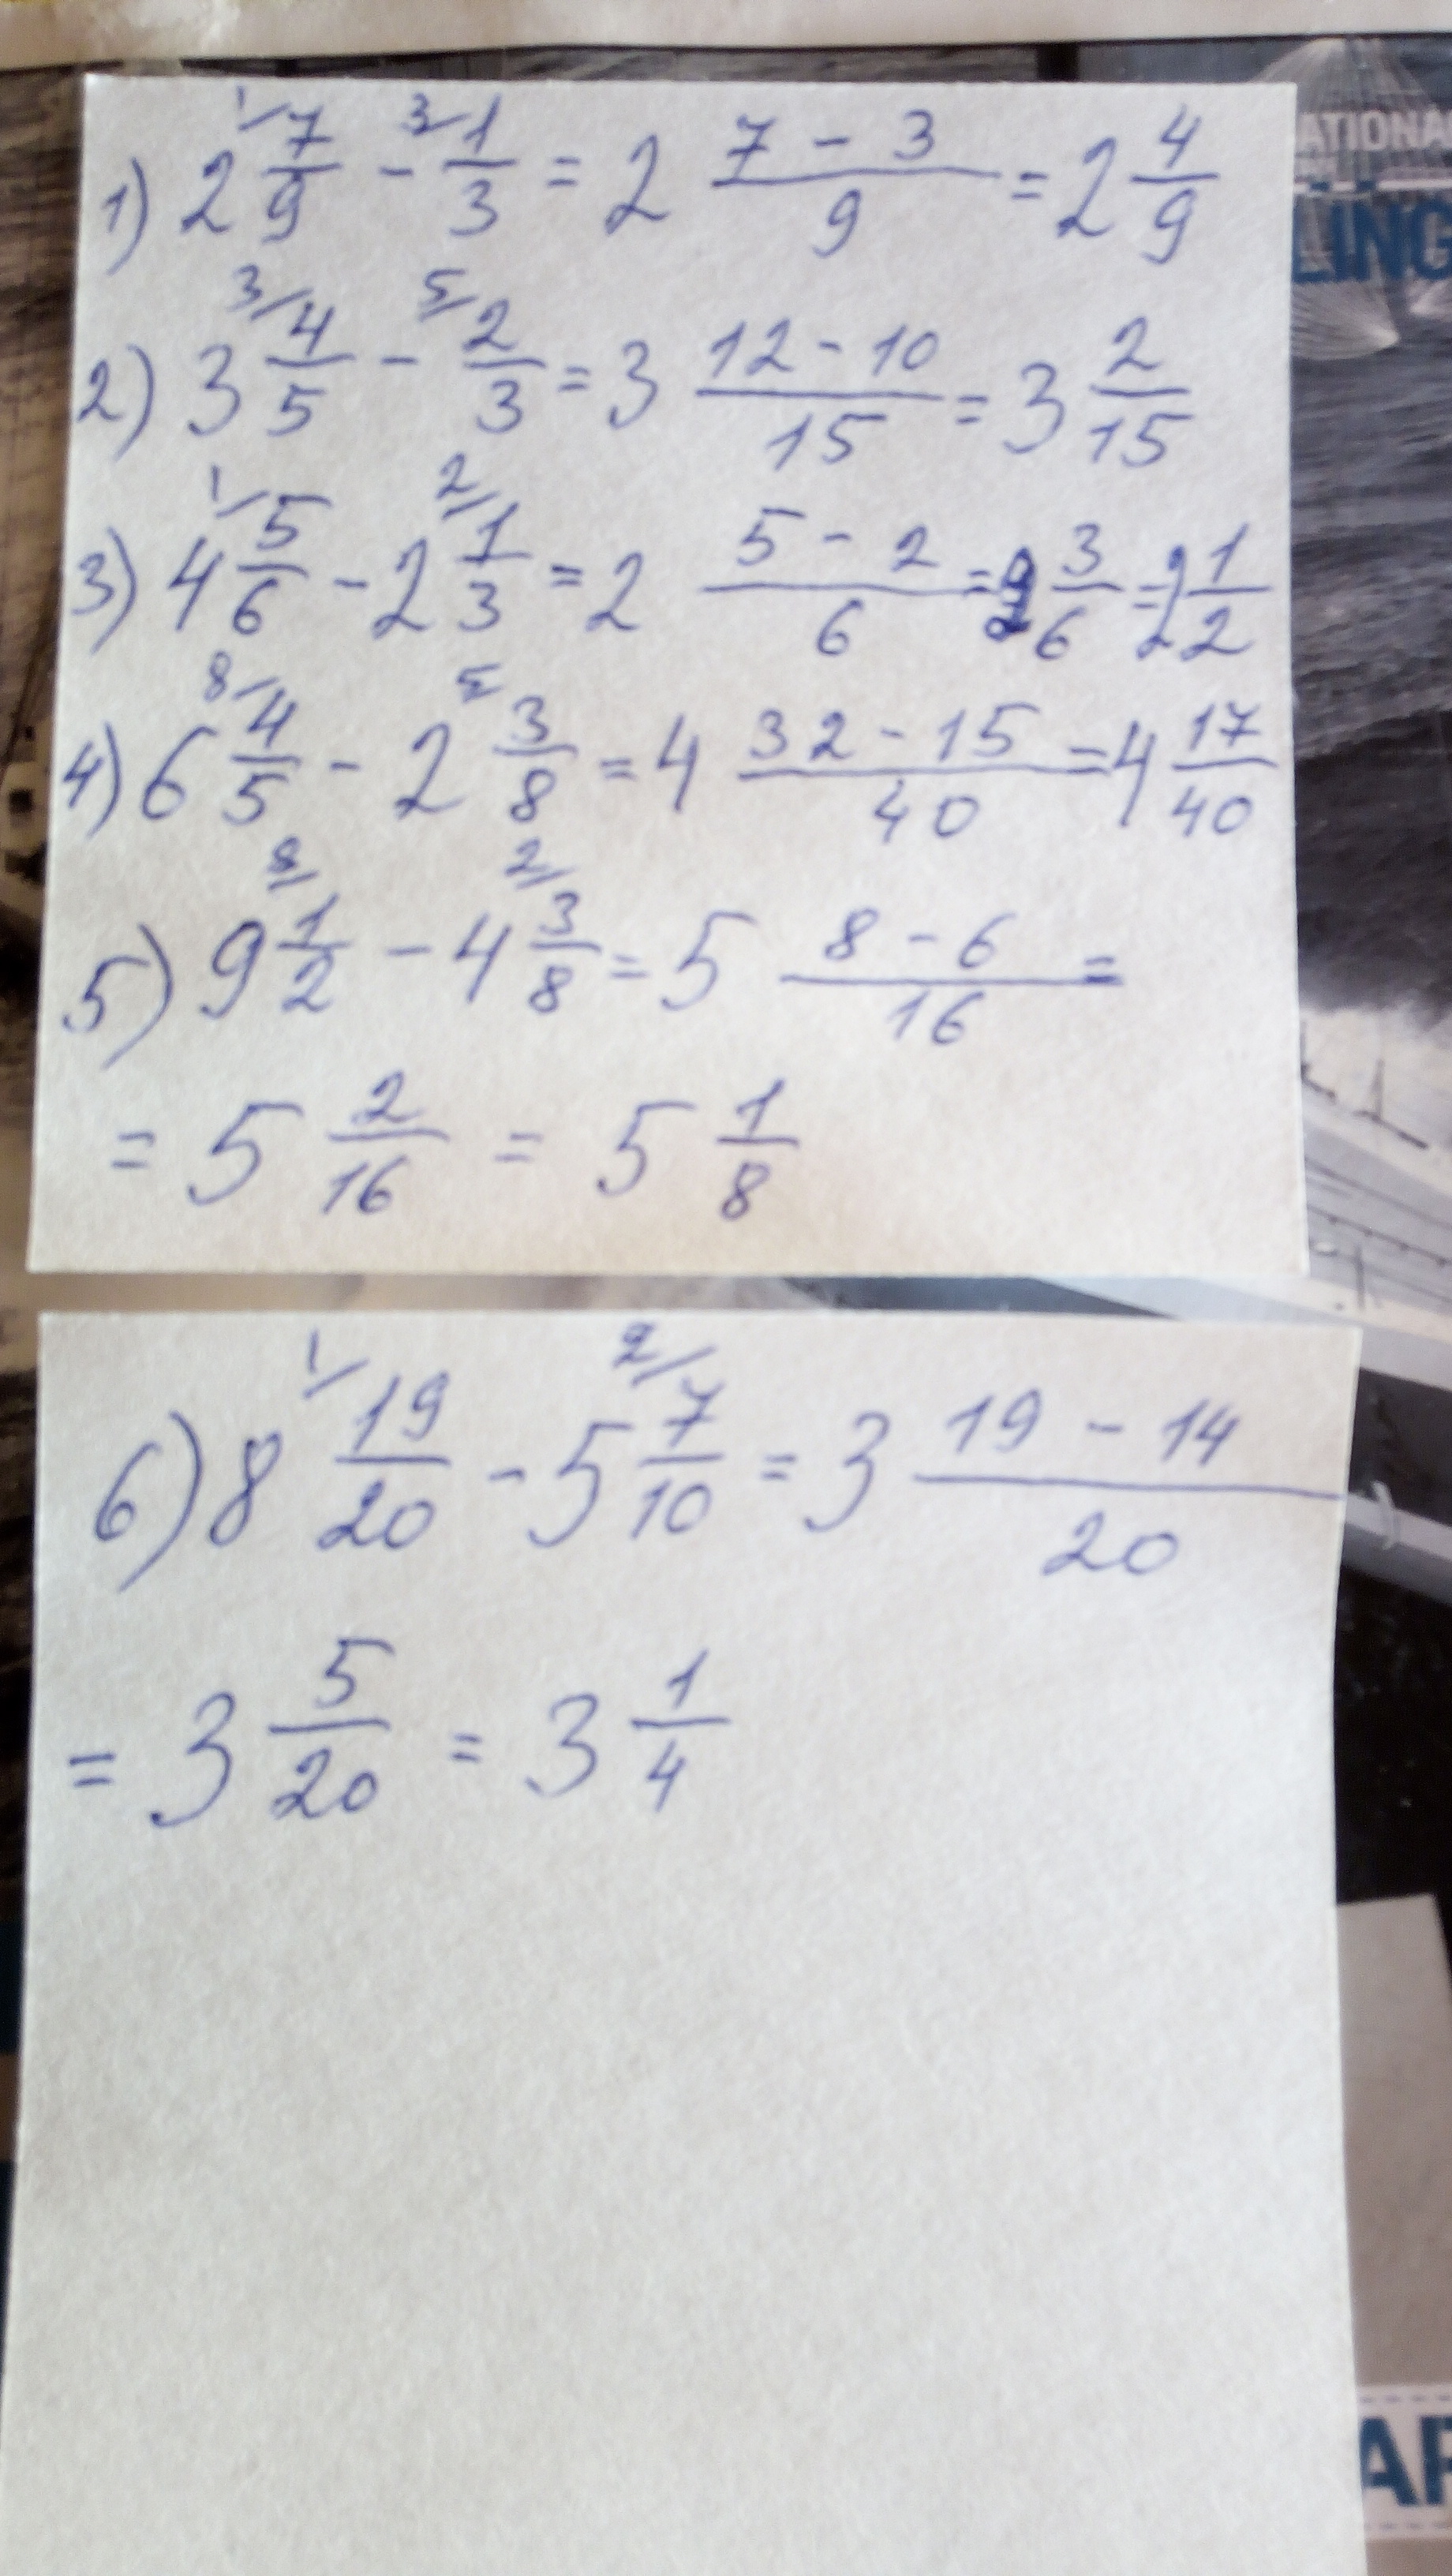 1) 2 1/ 7/9 - 3/ 1/3 = 2 (7 - 3)/9 = 2 4/9
2) 3 3/ 4/5 - 5/ 2/3 = 3 (12 - 10)/15 = 3 2/15
3) 4 1/ 5/6 - 2 2/ 1/3 = 2 (5 - 2)/6 = 2 3/6 = 2 1/2
4) 6 8/ 4/5 - 2 5/ 3/8 = 4 (32 - 15)/40 = 4 17/40
5) 9 8/ 1/2 - 4 2/ 3/8 = 5 (8 - 6)/16 =
= 5 2/16 = 5 1/8
6) 8 1/ 19/20 - 5 2/ 7/10 = 3 (19 - 14)/20
= 3 5/20 = 3 1/4
ATIONAL
LING
AR